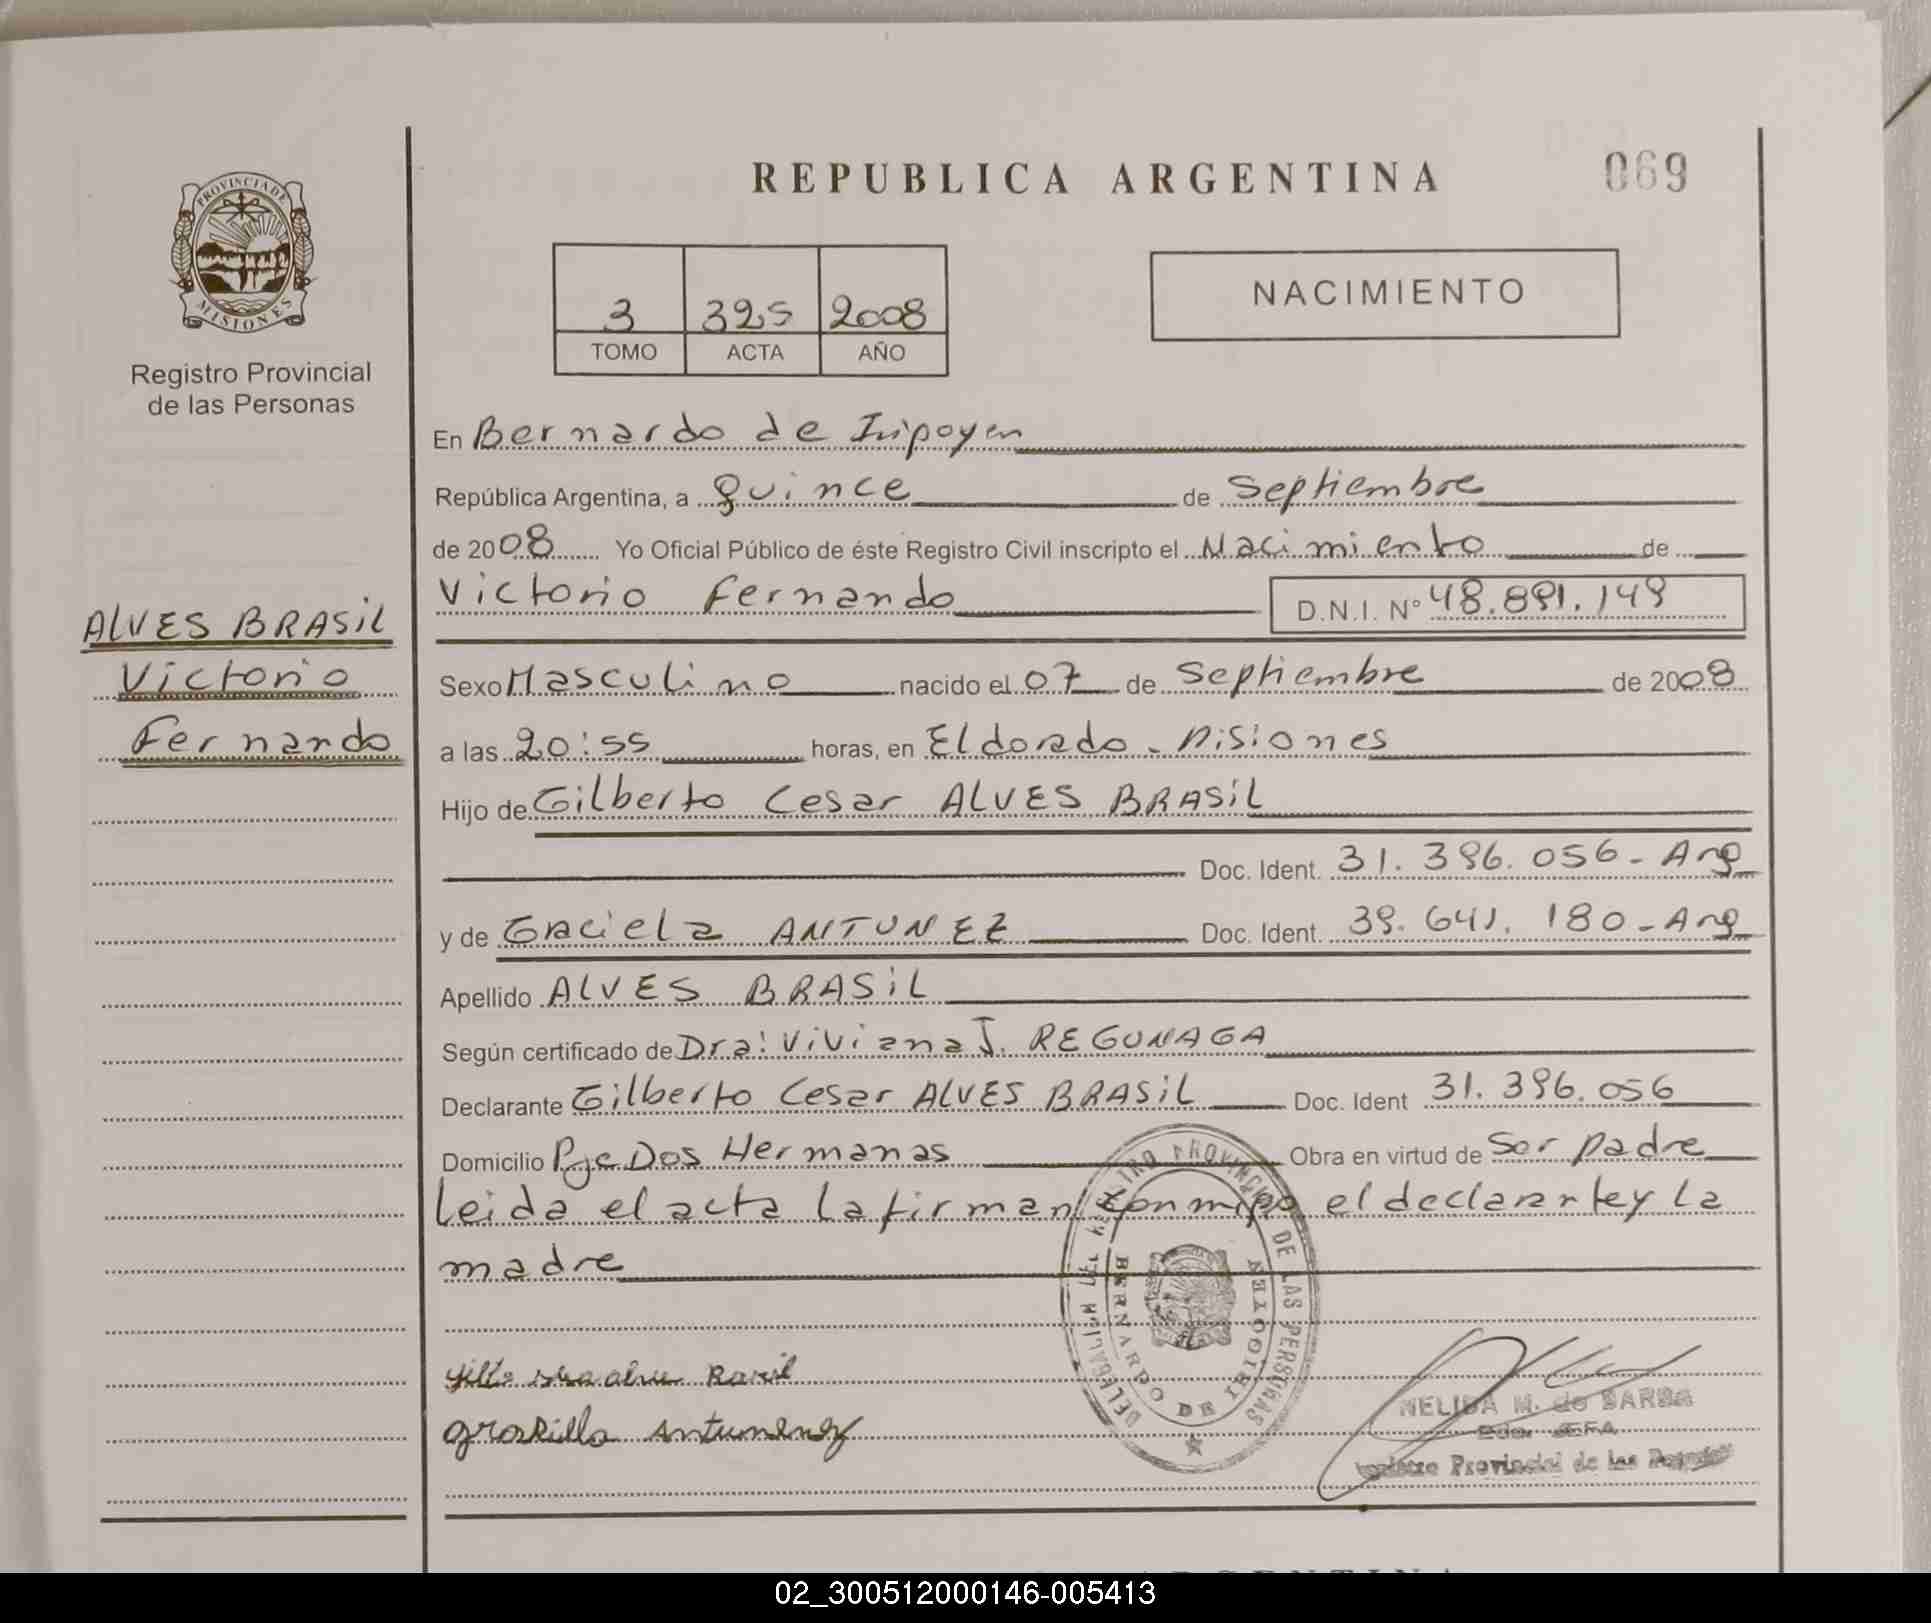 REPUBLICA ARGENTINA
069
PROVINCIA DE
MISIONES
Registro Provincial
de las Personas
3 325 2008
TOMO ACTA AÑO
NACIMIENTO
En Bernardo de Irigoyen
República Argentina, a quince de Septiembre
de 2008 Yo Oficial Público de éste Registro Civil inscripto el Nacimiento de
Victorio Fernando D.N.I. Nº 48.891.149
ALVES BRASIL
Victorio
Fernando
Sexo Masculino nacido el 07 de Septiembre de 2008
a las 20:55 horas, en Eldorado - Misiones
Hijo de Gilberto Cesar ALVES BRASIL
Doc. Ident. 31.396.056 - Arg
y de Graciela ANTUNEZ Doc. Ident. 39.641.180 - Arg
Apellido ALVES BRASIL
Según certificado de Dra: Viviana J. REGUNAGA
Declarante Gilberto Cesar ALVES BRASIL Doc. Ident 31.396.056
Domicilio Pje Dos Hermanas Obra en virtud de Ser padre
Leida el acta la firman conmigo el declarante y la
madre
DELEGACION DEL REGISTRO PROVINCIAL DE LAS PERSONAS
BERNARDO DE IRIGOYEN
Antunez
NELIDA M. de BARBA
JEFA
Registro Provincial de las Personas
02_300512000146-005413